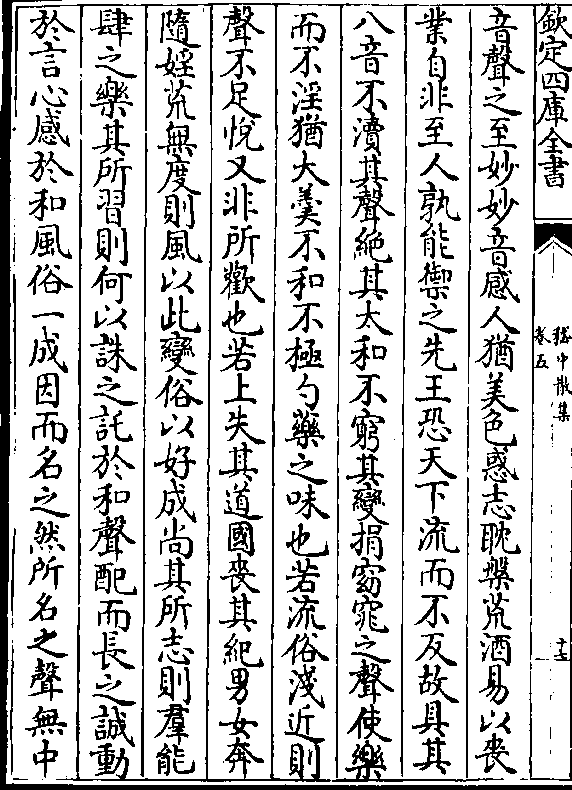 欽定四庫全書
嵇中散集
卷五
十七
音聲之至妙妙音感人猶美色惑志耽槃荒酒易以喪
業自非至人孰能禦之先王恐天下流而不反故具其
八音不瀆其聲絶其太和不窮其變捐窈窕之聲使樂
而不淫猶大羹不和不極勺藥之味也若流俗淺近則
聲不足悅又非所歡也若上失其道國喪其紀男女奔
隨婬荒無度則風以此變俗以好成尚其所志則羣能
肆之樂其所習則何以誅之託於和聲配而長之誠動
於言心感於和風俗一成因而名之然所名之聲無中